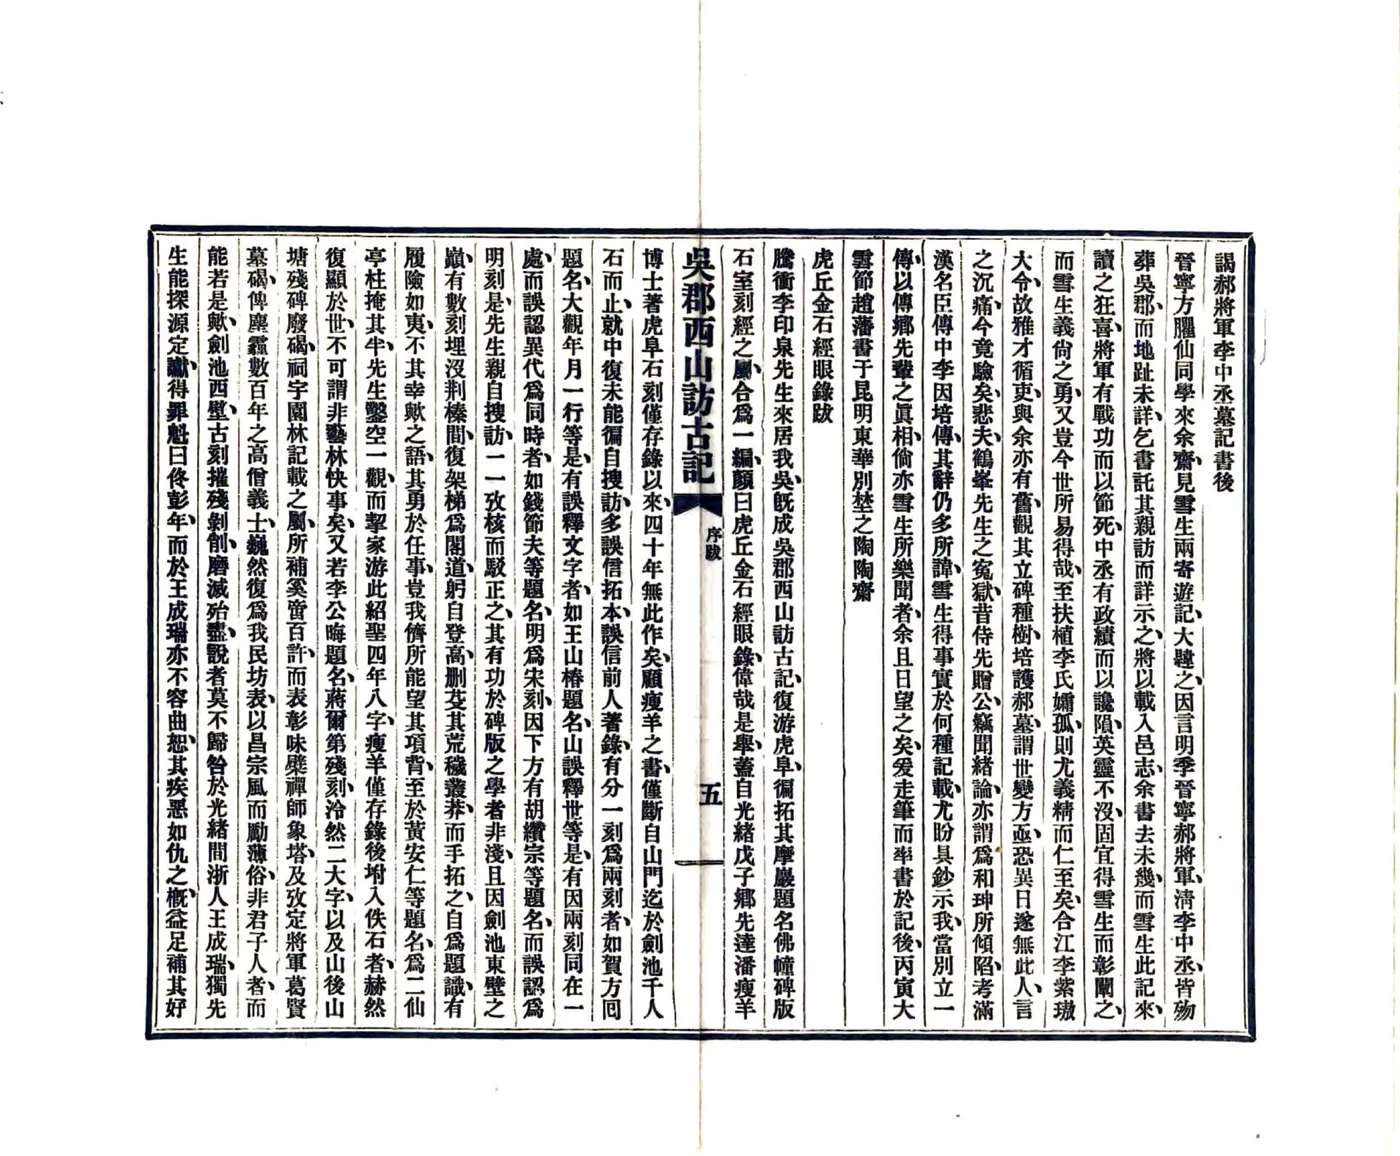 謁郝將軍李中丞墓記書後
晉寧方臞仙同學來余齋、見雪生兩寄遊記、大韙之、因言明季晉寧郝將軍、淸李中丞、皆歿
葬吳郡、而地趾未詳、乞書託其親訪而詳示之、將以載入邑志、余書去未幾、而雪生此記來、
讀之狂喜、將軍有戰功而以節死、中丞有政績而以讒隕、英靈不沒、固宜得雪生而彰闡之、
而雪生義尙之勇、又豈今世所易得哉、至扶植李氏孀孤、則尤義精而仁至矣、合江李紫璈
大令、故雅才循吏、與余亦有舊、觀其立碑種樹、培護郝墓、謂世變方亟、恐異日遂無此人、言
之沉痛、今竟驗矣、悲夫、鶴峯先生之寃獄、昔侍先贈公、竊聞緒論、亦謂爲和珅所傾陷、考滿
漢名臣傳中李因培傳、其辭仍多所諱、雪生得事實於何種記載、尤盼具鈔示我、當別立一
傳、以傳鄉先輩之眞相、倘亦雪生所樂聞者、余且日望之矣、爰走筆而率書於記後、丙寅大
雪節趙藩書于昆明東華別埜之陶陶齋
虎丘金石經眼錄跋
騰衝李印泉先生來居我吳、旣成吳郡西山訪古記、復游虎阜、徧拓其摩巖題名佛幢碑版
石室刻經之屬、合爲一編、顏曰虎丘金石經眼錄、偉哉是舉、蓋自光緒戊子、鄉先達潘瘦羊
吳郡西山訪古記
序跋
五
博士著虎阜石刻僅存錄以來、四十年無此作矣、顧瘦羊之書、僅斷自山門迄於劍池千人
石而止、就中復未能徧自搜訪、多誤信拓本、誤信前人著錄、有分一刻爲兩刻者、如賀方囘
題名、大觀年月一行等是、有誤釋文字者、如王山椿題名、山誤釋世等是、有因兩刻同在一
處、而誤認異代爲同時者、如錢節夫等題名、明爲宋刻、因下方有胡纘宗等題名、而誤認爲
明刻是、先生親自搜訪、一一攷核而駁正之、其有功於碑版之學者非淺、且因劍池東壁之
巓、有數刻埋沒荆榛間、復架梯爲閣道、躬自登高、删芟其荒穢叢莽、而手拓之、自爲題識、有
履險如夷、不其幸歟之語、其勇於任事、豈我儕所能望其項背、至於黃安仁等題名、爲二仙
亭柱掩其半、先生鑿空一觀、而挈家游此紹聖四年八字、瘦羊僅存錄後坿入佚石者、赫然
復顯於世、不可謂非藝林快事矣、又若李公晦題名、蔣爾第殘刻、泠然二大字、以及山後山
塘殘碑廢碣、祠宇園林記載之屬、所補奚啻百許、而表彰味檗禪師象塔、及攷定將軍葛賢
墓碣、俾塵霾數百年之高僧義士、巍然復爲我民坊表、以昌宗風而勵薄俗、非君子人者、而
能若是歟、劍池西壁、古刻摧殘剝削、磨滅殆盡、說者莫不歸咎於光緒間浙人王成瑞、獨先
生能探源定讞、得罪魁曰佟彭年、而於王成瑞亦不容曲恕、其疾惡如仇之槪、益足補其好